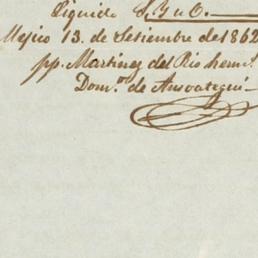 Liquido S. Y u O.
Mejico 13. de Setiembre de 1862
pp. Martinez del Rio herm.ˢ
Dom.ᵒ de Ansoategui